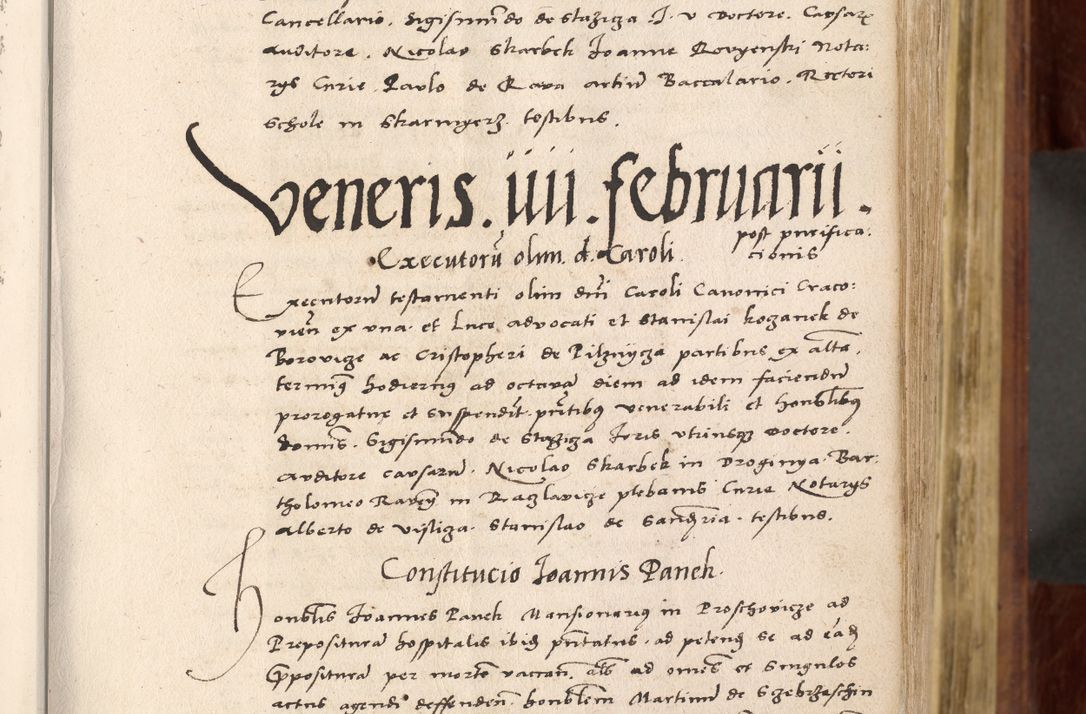 Cancellario. Sigismūdo de Stazicza J. v doctore. Causarū
auditore. Nicolao Skarbek Joanne Rovyenski Nota:
rijs Curie. Paulo de Rava artiū Baccalario. Rectori
Schole in Skarmyerz. testibus.
Veneris. iiii. februarii.
post purifica:
cionis
Executorū olim. d. Caroli.
Executorū testamenti olim dn̄i Caroli Canonici Craco:
vien̄ ex vna. et Luce advocati et Stanislai kozanek de
Borovicze ac Cristopheri de Pilznycza partibus ex alta.
terminꝰ hodiernꝰ ad octavā diem ad idem faciendū
prorogatur et suspendit. pn̄tibꝰ venerabili et honblibꝰ
domīs. Sigismūdo de Stazicza Juris vtriusqꝫ doctore.
Auditore causarū. Nicolao Skarbek in Droginya. Bar:
tholomeo in Raczlavicze plebanis Curie Notarijs
Alberto de visliga. Stanislao de Sandzria. testibus.
Constitucio Joannis Panek.
Honblis Joannes Panek Mansionariꝰ in Proschovicze ad
Preposituram hospitalis ibid pn̄tatus. ad petend se ad eād
Preposituram per mortē vacan. als ad omēs et Singulos
actus agend deffenden. honblem Martinū de Szebrzeschin